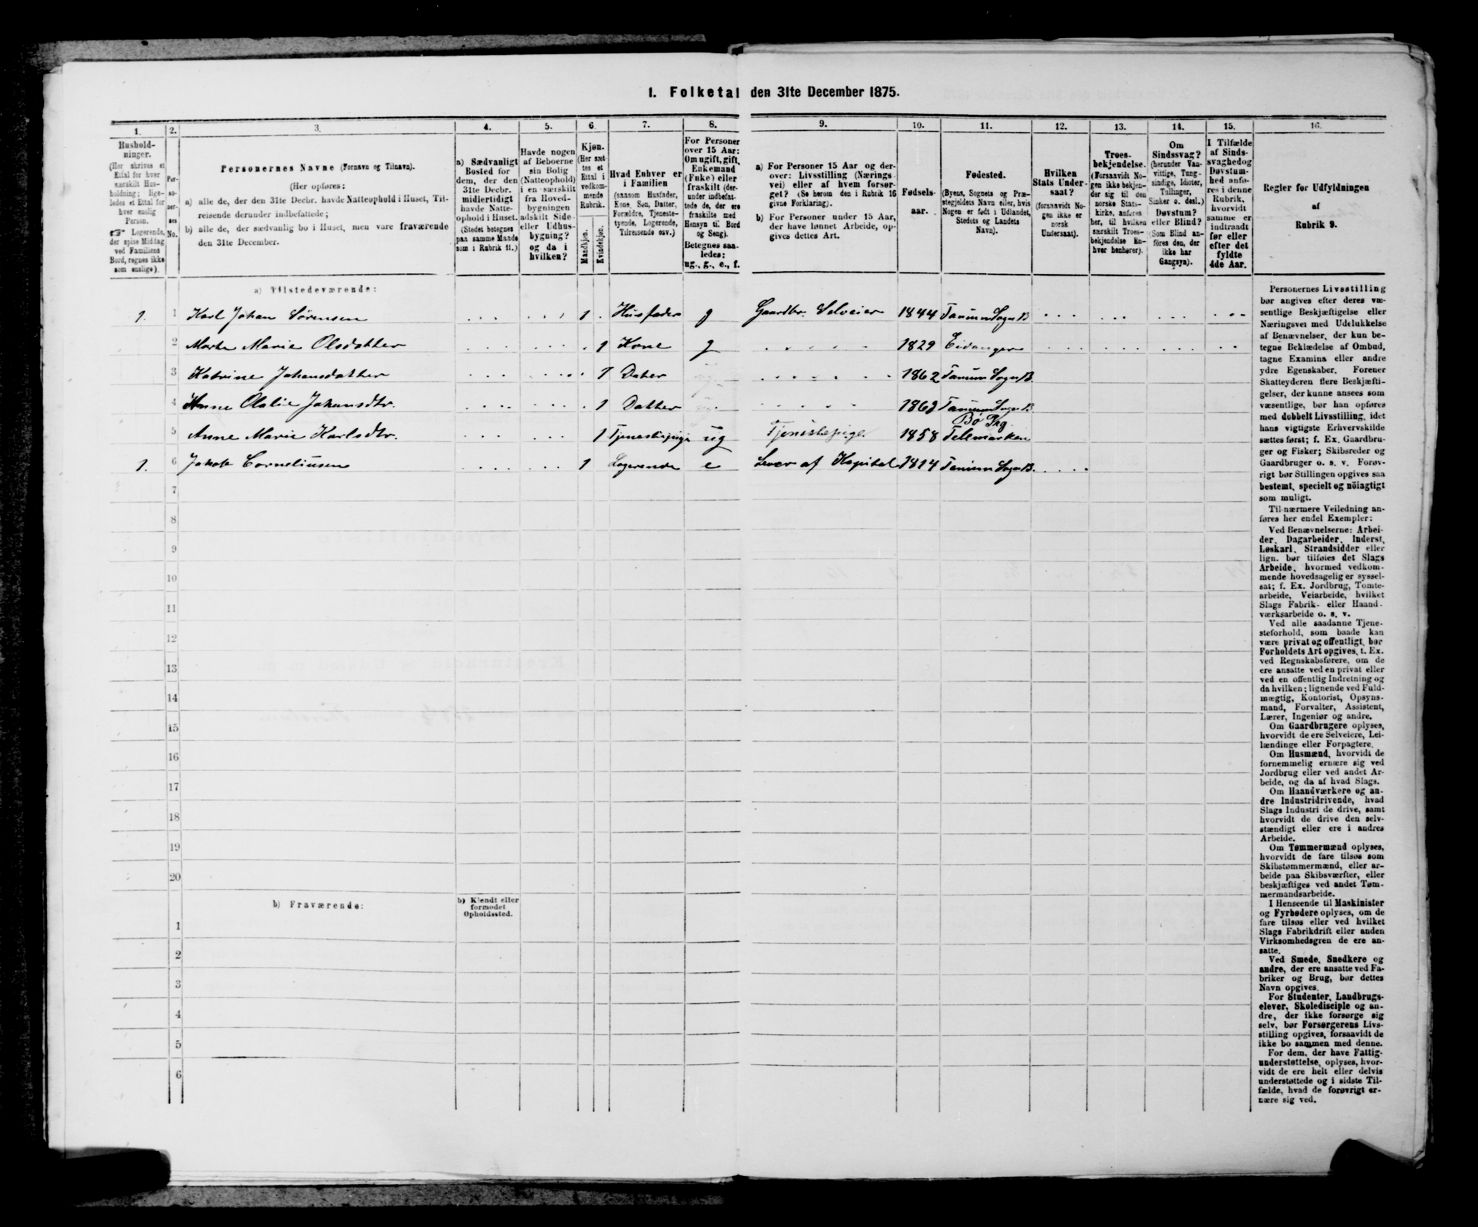 1. Folketal den 31te December 1875.
1.
2.
3.
4.
5.
6.
7.
8.
9.
10.
11.
12.
13.
14.
15.
16.
Hushold-
ninger.
(Her skrives et
Ettal for hver
særskilt Hus-
holdning; lige-
ledes et Ettal for
hver enslig
Person.
☞ Logerende,
der spise Middag
ved Familiens
Bord, regnes ikke
som enslige).
Per-
so-
ner-
nes
No.
Personernes Navne (Fornavn og Tilnavn).
(Her opføres:
a) alle de, der den 31te Decbr. havde Natteophold i Huset, Til-
reisende derunder indbefattede;
b) alle de, der sædvanlig bo i Huset, men vare fraværende
den 31te December.
a) Sædvanligt
Bosted for
dem, der den
31te Decbr.
midlertidigt
havde Natte-
ophold i Huset.
(Stedet betegnes
paa samme Maade
som i Rubrik 11.)
Havde nogen
af Beboerne
sin Bolig
(Natteophold)
i en særskilt
fra Hoved-
bygningen
adskilt Side-
eller Udhus-
bygning?
og da i
hvilken?
Kjøn.
(Her sæt-
tes et
Ettal i
vedkom-
mende
Rubrik.
Mandkjøn.
Kvindekjøn.
Hvad Enhver er
i Familien
(saasom Husfader,
Kone, Søn, Datter,
Forældre, Tjeneste-
tyende, Logerende,
Tilreisende osv.)
For Personer
over 15 Aar:
Om ugift, gift,
Enkemand
(Enke) eller
fraskilt (der-
under indbefat-
tede de, der ere
fraskilte med
Hensyn til Bord
og Seng).
Betegnes saa-
ledes:
ug., g., e., f.
a) For Personer 15 Aar og der-
over: Livsstilling (Nærings-
vei) eller af hvem forsør-
get? (Se herom den i Rubrik 16
givne Forklaring).
b) For Personer under 15 Aar,
der have lønnet Arbeide, op-
gives dettes Art.
Fødsels-
aar.
Fødested.
(Byens, Sognets og Præ-
stegjeldets Navn eller, hvis
Nogen er født i Udlandet,
Stedets og Landets
Navn).
Hvilken
Stats Under-
saat?
(forsaavidt No-
gen ikke er
norsk
Undersaat).
Troes-
bekjendelse.
(Forsaavidt No-
gen ikke bekjen-
der sig til den
norske Stats-
kirke, anføres
her, til hvilken
særskilt Troes-
bekjendelse En-
hver henhører).
Om
Sindssvag?
(herunder Van-
vittige, Tung-
sindige, Idioter,
Tullinger,
Sinker o. desl.)
Døvstum?
eller Blind?
(Som Blind an-
føres den, der
ikke har
Gangsyn).
I Tilfælde
af Sinds-
svaghed og
Døvstum-
hed anfø-
res i denne
Rubrik,
hvorvidt
samme er
indtraadt
før eller
efter det
fyldte
4de Aar.
Regler for Udfyldningen
af
Rubrik 9.
a) Tilstedeværende:
1. 1 Karl Johan Sørensen 1 Husfader g Gaardbr. Selveier 1844 Tanum Sogn B
2 Marte Marie Olsdatter 1 Kone g 1829 Eidanger
3 Katrine Johansdatter 1 Dater 1862 Tanum Sogn B.
4 Anne Olalie Johansdtr. 1 Datter 1863 Tanum Sogn B
5 Anne Marie Karlsdtr. 1 Tjenestepige ug Tjenestepige 1858 Bø Prg.
Telemarken
1. 6 Jakob Corneliusen 1 Logerende e Lever af Kapital 1814 Tanum Sogn B.
7
8
9
10
11
12
13
14
15
16
17
18
19
20
b) Fraværende:
b) Kjendt eller
formodet
Opholdssted.
1
2
3
4
5
6
Personernes Livsstilling
bør angives efter deres væ-
sentlige Beskjæftigelse eller
Næringsvei med Udelukkelse
af Benævnelser, der kun be-
tegne Beklædelse af Ombud,
tagne Examina eller andre
ydre Egenskaber. Forener
Skatteyderen flere Beskjæfti-
gelser, der kunne ansees som
væsentlige, bør han opføres
med dobbelt Livsstilling, idet
hans vigtigste Erhvervskilde
sættes først; f. Ex. Gaardbru-
ger og Fisker; Skibsreder og
Gaardbruger o. s. v. Forøv-
rigt bør Stillingen opgives saa
bestemt, specielt og nöiagtigt
som muligt.
Til nærmere Veiledning an-
føres her endel Exempler:
Ved Benævnelserne: Arbei-
der, Dagarbeider, Inderst,
Løskarl, Strandsidder eller
lign. bør tilføies det Slags
Arbeide, hvormed vedkom-
mende hovedsagelig er syssel-
sat; f. Ex. Jordbrug, Tomte-
arbeide, Veiarbeide, hvilket
Slags Fabrik- eller Haand-
værksarbeide o. s. v.
Ved alle saadanne Tjene-
steforhold, som baade kan
være privat og offentligt, bør
Forholdets Art opgives, t. Ex.
ved Regnskabsførere, om de
ere ansatte ved en privat eller
ved en offentlig Indretning og
da hvilken; lignende ved Fuld-
mægtig, Kontorist, Opsyns-
mand, Forvalter, Assistent,
Lærer, Ingeniør og andre.
Om Gaardbrugere oplyses,
hvorvidt de ere Selveiere, Lei-
lændinge eller Forpagtere.
Om Husmænd, hvorvidt de
fornemmelig ernære sig ved
Jordbrug eller ved andet Ar-
beide, og da af hvad Slags.
Om Haandværkere og an-
dre Industridrivende, hvad
Slags Industri de drive, samt
hvorvidt de drive den selv-
stændigt eller ere i andres
Arbeide.
Om Tømmermænd oplyses,
hvorvidt de fare tilsøs som
Skibstømmermænd, eller ar-
beide paa Skibsværfter, eller
beskjæftiges ved andet Tøm-
mermandsarbeide.
I Henseende til Maskinister
og Fyrbødere oplyses, om de
fare tilsøs eller ved hvilket
Slags Fabrikdrift eller anden
Virksomhedsgren de ere an-
satte.
Ved Smede, Snedkere og
andre, der ere ansatte ved Fa-
briker og Brug, bør dettes
Navn opgives.
For Studenter, Landbrugs-
elever, Skoledisciple og an-
dre, der ikke forsørge sig
selv, bør Forsørgerens Livs-
stilling opgives, forsaavidt de
ikke bo sammen med denne.
For dem, der have Fattig-
understøttelse, oplyses, hvor-
vidt de ere helt eller delvis
understøttede og i sidste Til-
fælde, hvad de forøvrigt er-
nære sig ved.